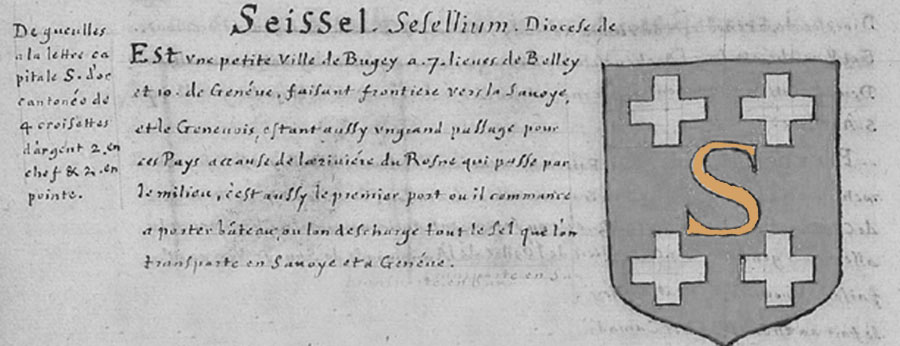 Seissel. Sesellium. Diocese de
De gueulles
a la lettre ca
pitale S. d'or
cantonée de
4 croisettes
d'argent 2. en
chef & 2. en
pointe.
Est vne petite ville de Bugey a .7. lieues de Belley
et 10. de Genéue, faisant frontiere vers la Sauoye,
et le Geneuois, estant aussy vn grand passage pour
ces Pays a cause de la riuiére du Rosne qui passe par
le milieu, c'est aussy le premier port ou il commance
a porter bâteau, ou lon descharge tout le sel que l'on
transporte en Sauoye et a Genéue.
S